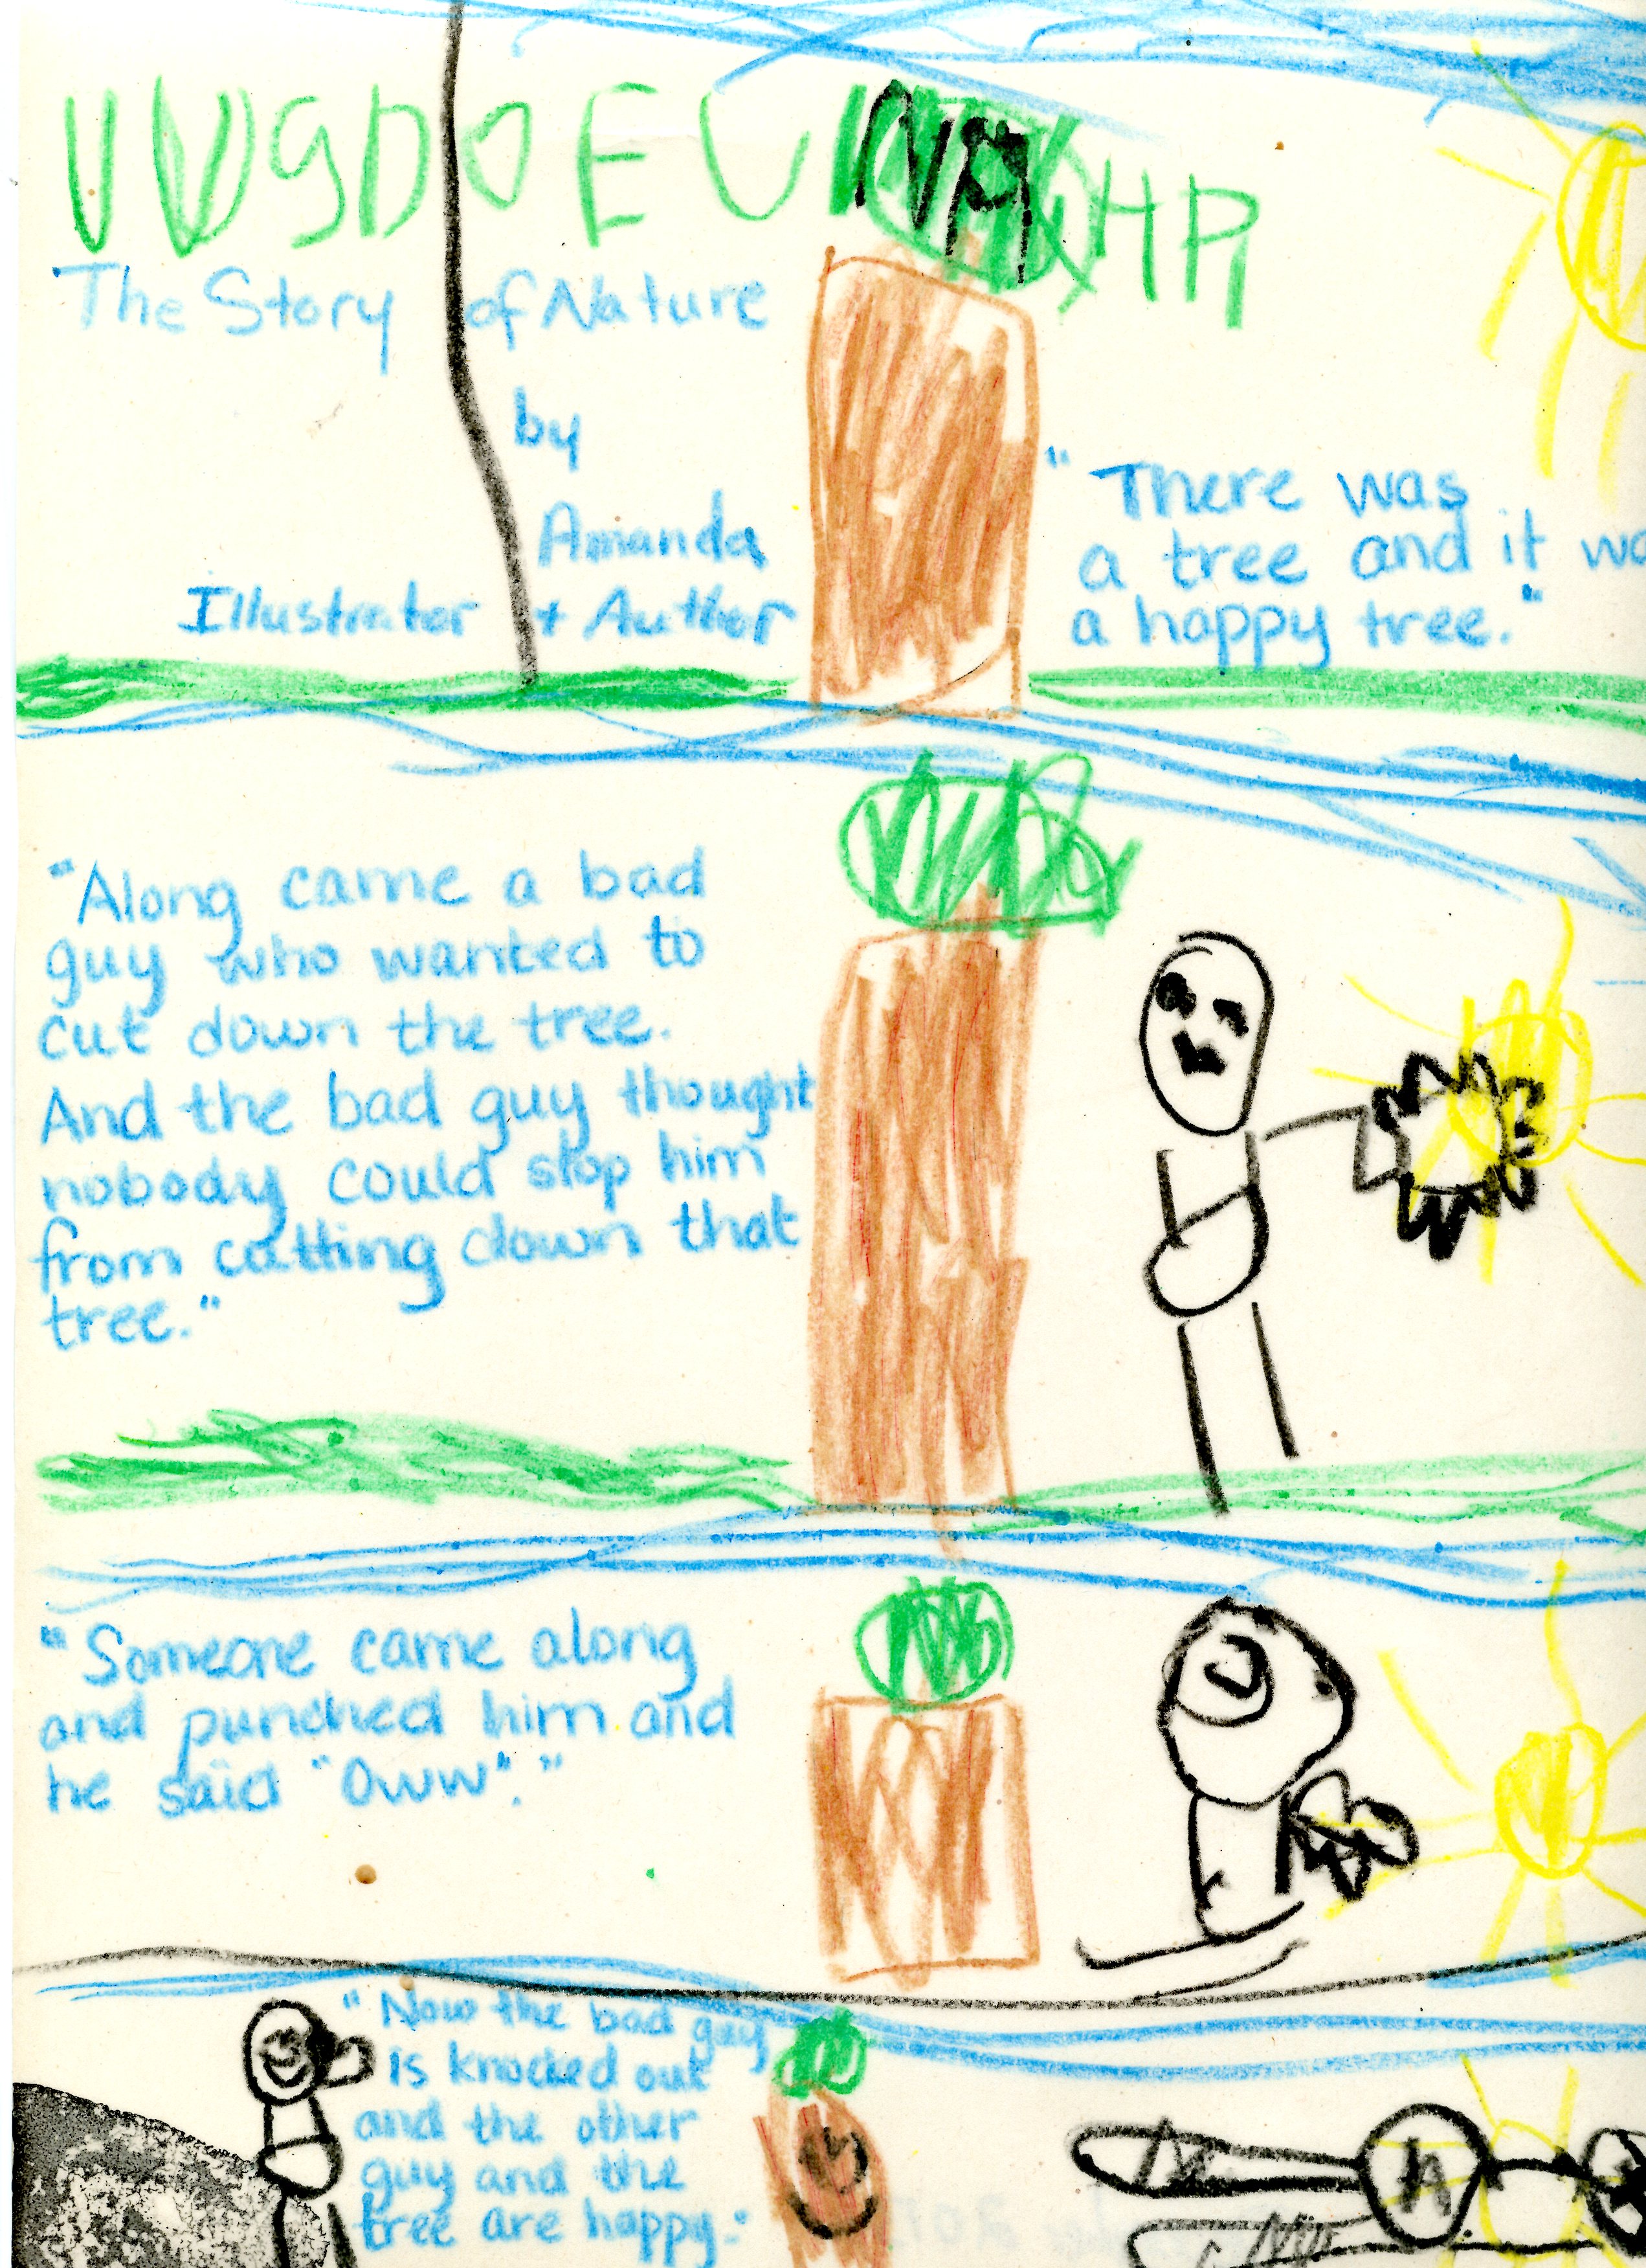 The Story of Nature
by
Amanda
Illustrator + Author
"There was
a tree and it
a happy tree."
"Along came a bad
guy who wanted to
cut down the tree.
And the bad guy thought
nobody could stop him
from cutting down that
tree."
"Someone came along
and punched him and
he said "Oww"."
"Now the bad guy
is knocked out
and the other
guy and the
tree are happy."